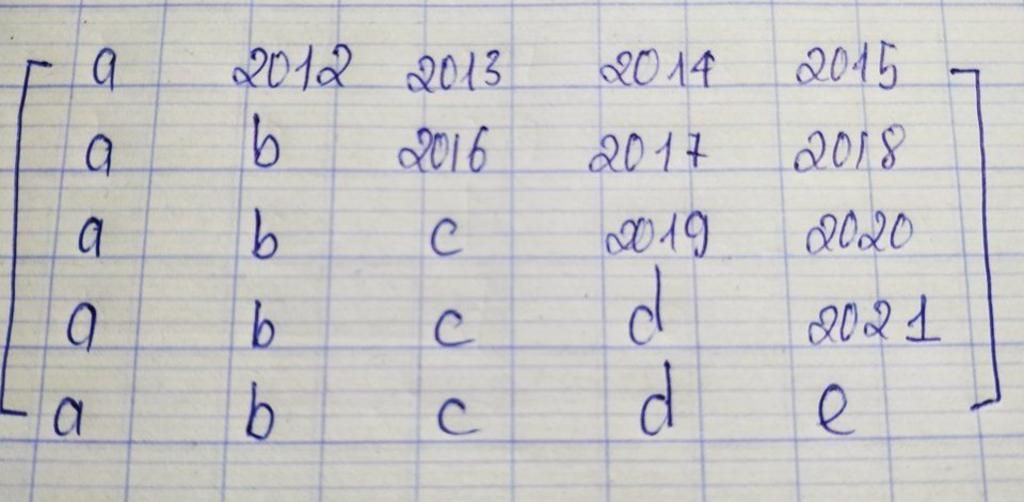 a 2012 2013 2014 2015
a b 2016 2017 2018
a b c 2019 2020
a b c d 2021
a b c d e